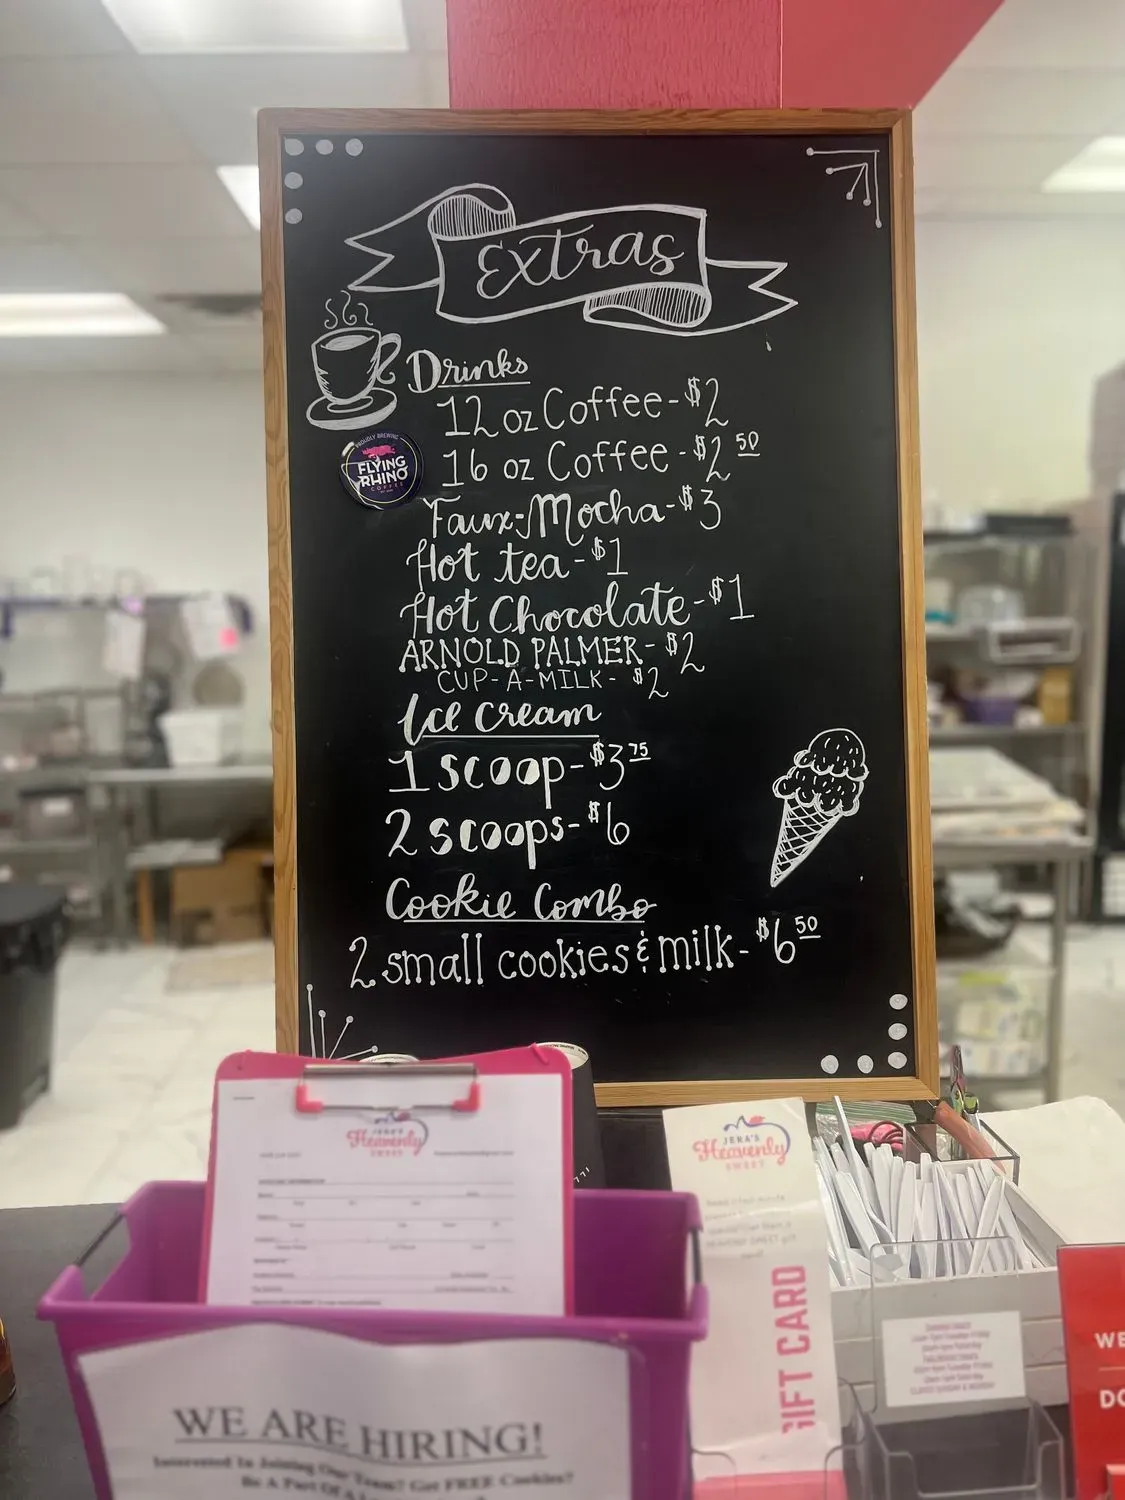 Extras
Drinks
12 oz Coffee-$2
16 oz Coffee-$2 50
PROUDLY BREWING
FLYING
RHINO
COFFEE
Faux-Mocha-$3
Hot tea-$1
Hot Chocolate-$1
ARNOLD PALMER-$2
CUP-A-MILK-$2
Ice Cream
1 scoop-$3 75
2 scoops-$6
Cookie Combo
2 small cookies & milk-$6 50
JERA'S
Heavenly
SWEET
JERA'S
Heavenly
SWEET
GIFT CARD
WE ARE HIRING!
Interested In Joining Our Team? Get FREE Cookies?
Be A Part Of A
WE
DO